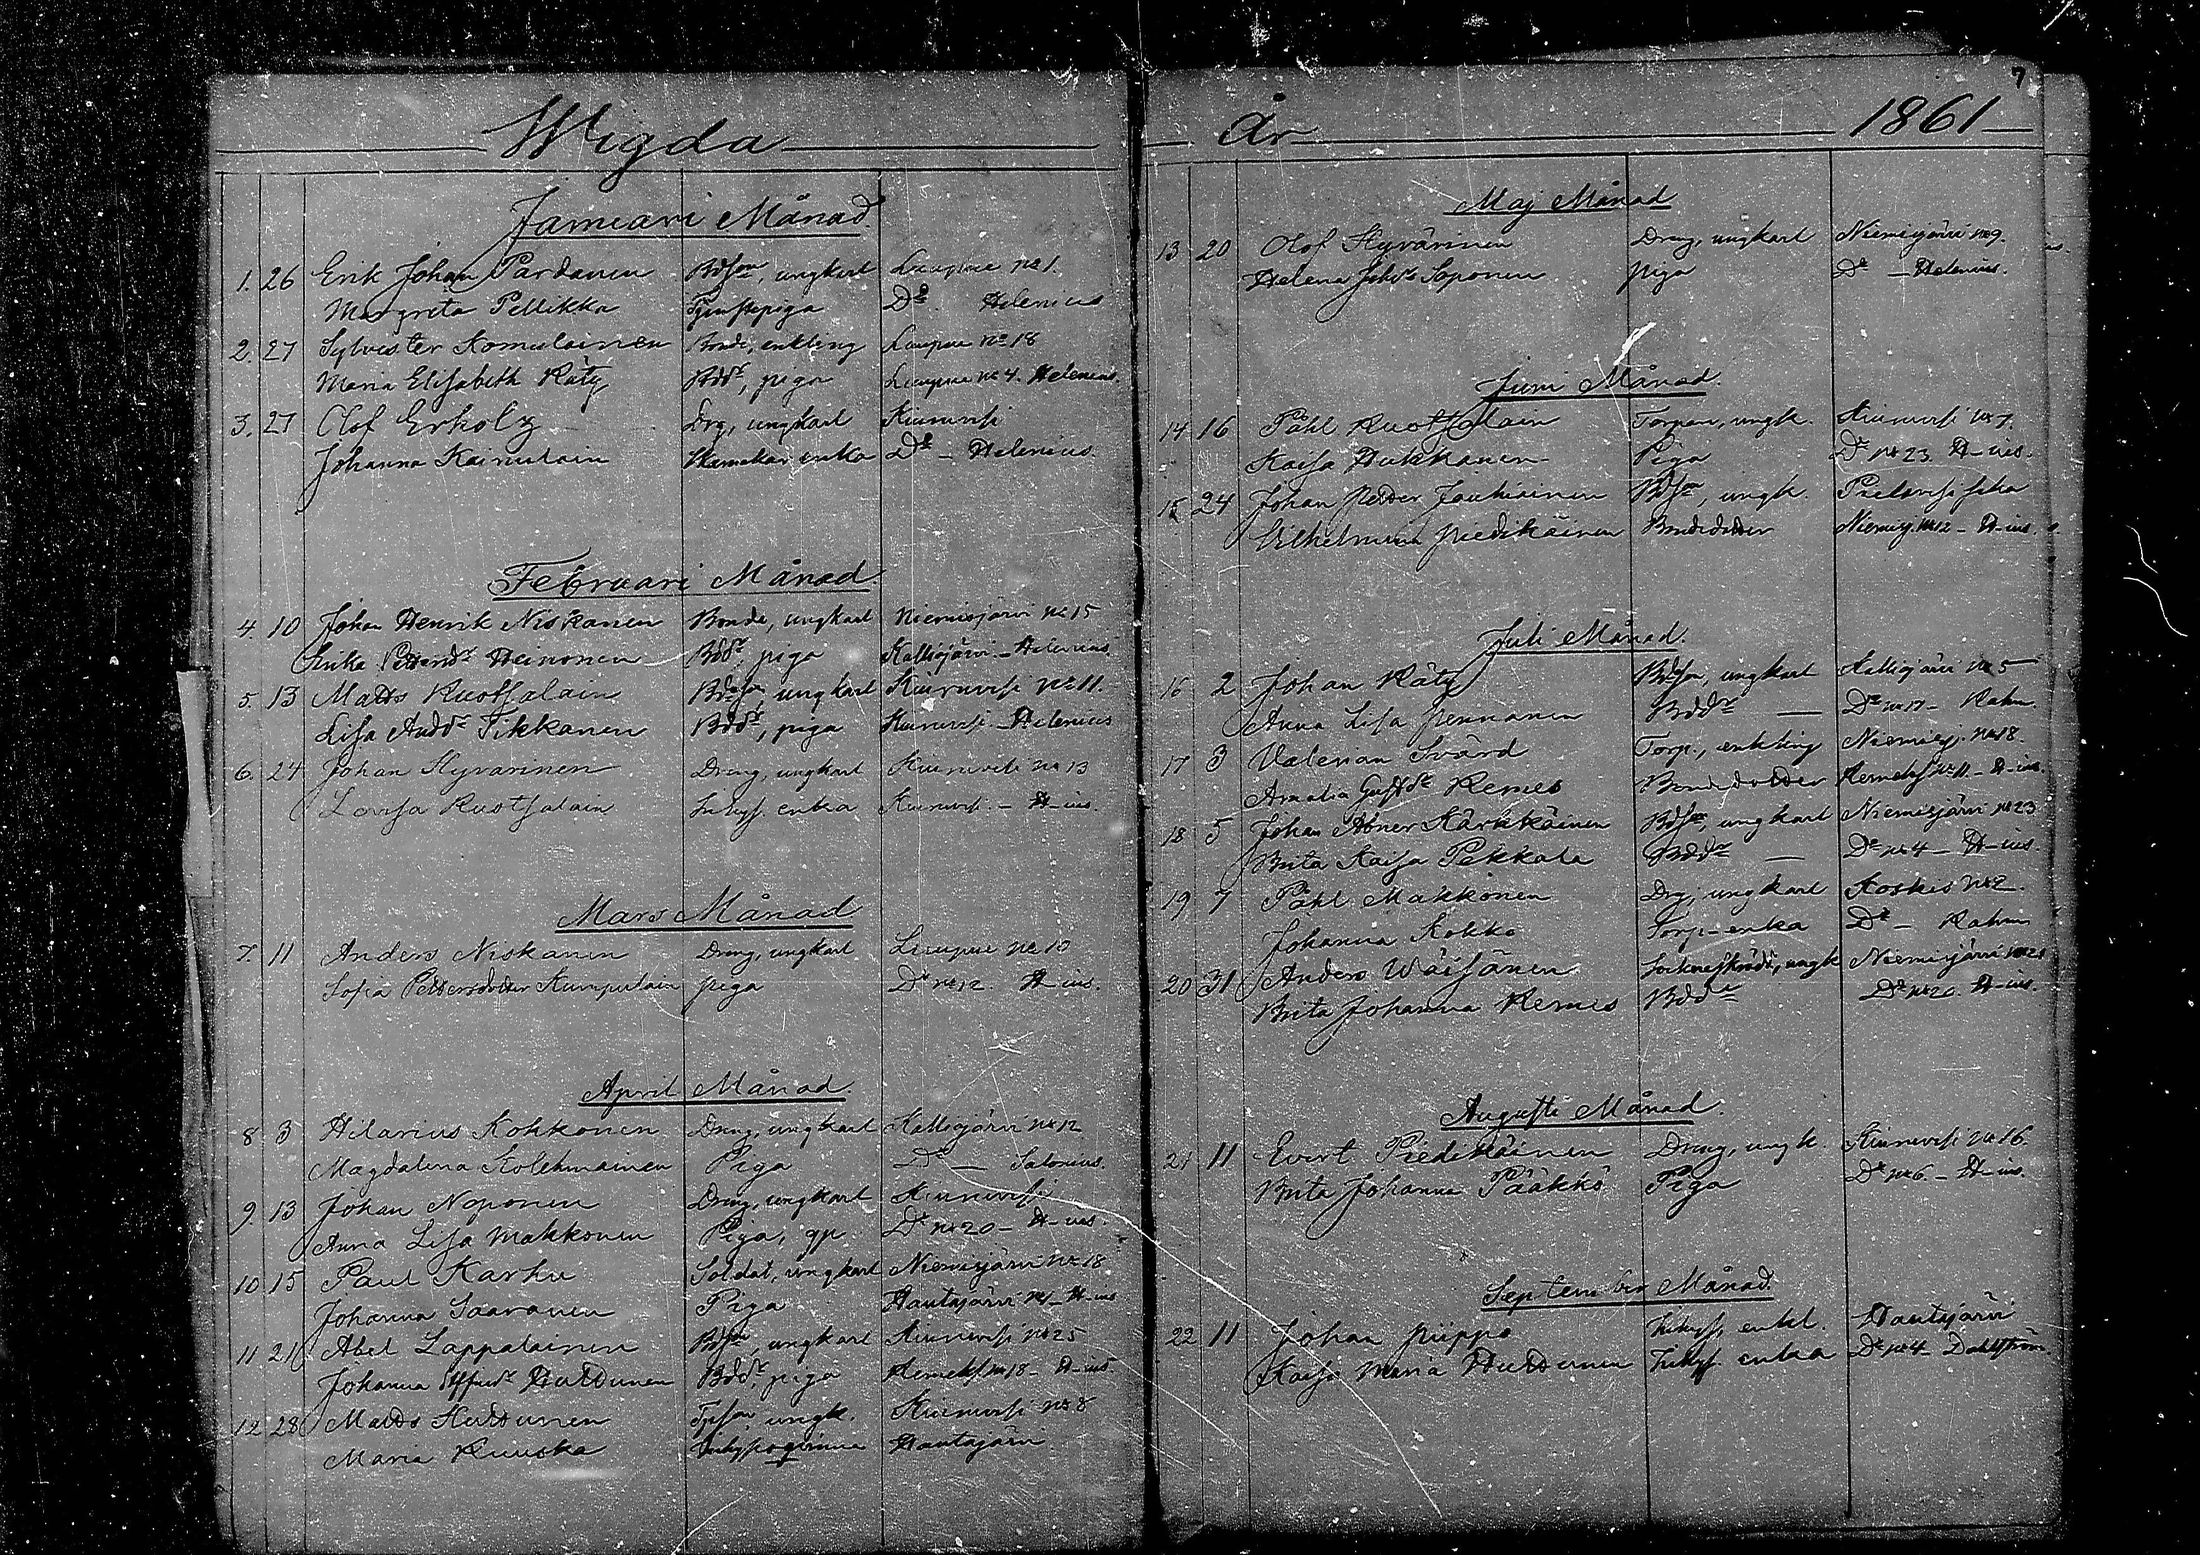 Wigda
Januari Månad
1. 26 Erik Johan Pardanen Bdson, ungkarl Liuspue No 1.
Margreta Pellikka Tjenstepiga Do. Helenius
2. 27 Sylvester Komulainen Bonde, enkling No 18
Maria Elisabeth Räty Bddr, piga No 4. Helenius.
3. 27 Olof Erholz Drg, ungkarl Kiuruvesi
Johanna Kainulain enka Do – Helenius.
Februari Månad
4. 10 Johan Henrik Niskanen Bonde, ungkarl Niemisjärvi No 15
Erika Pettersdr Heinonen Bddr, piga Kalliojärvi – Helenius
5. 13 Matts Ruotsalain Bdeson, ungkarl Kiuruvesi No 11.
Lisa Anddr Tikkanen Bddr, piga Kiuruvesi – Helenius
6. 24 Johan Hyvärinen Dreng, ungkarl Kiuruvesi No 13
Lovisa Ruotsalain Inhys. enka Kiuruvesi – H–ius.
Mars Månad
7. 11 Anders Niskanen Dreng, ungkarl No 10
Sofia Pettersdotter Kumpulain piga Do No 12. H–ius.
April Månad
8 3 Hilarius Kokkonen Dreng, ungkarl Kalliojärvi No 12
Magdalena Kolehmainen Piga Do — Salonius.
9. 13 Johan Noponen Dreng, ungkarl Kiuruvesi
Anna Lisa Makkonen Piga, Do No 20 – H–ius.
10 15 Paul Karhu Soldat, ungkarl Niemisjärvi No 18
Johanna Saaranen Piga Hautajärvi No 1 – H–ius
11 21 Abel Lappalainen Bdson, ungkarl Kiuruvesi No 25
Johanna Huttunen Bddr, piga Remeks. No 18 – H–ius.
12 28 Matts Huttunen ungk. Kiuruvesi No 8
Maria Ruuska Inhyseqvinna Hautajärvi
7
År 1861
Maj Månad
13 20 Olof Hyvärinen Dreng, ungkarl Niemisjärvi No 9.
Helena Johdr Soponen piga Do – Helenius.
Juni Månad.
14 16 Påhl Ruotsalain Torpare, ungk. Kiuruvesi No 7.
Kaisa Hukkanen Piga Do No 23. H–ius.
15 24 Johan Petter Jauhiainen Bdson, ungk. Pielavesi
Vilhelmina Piedikäinen Bondedotter Niemisj. No 12 – H–ius.
Juli Månad.
16 2 Johan Räty Bdeson, ungkarl Kalliojärvi No 5
Anna Lisa Pennanen Bddr — Do No 17 – Rahm.
17 3 Valerian Svärd Torp., enkling Niemisj. No 18
Amalia Gustdr Remes Bondedotter Remeks No 11 – H–ius.
18 5 Johan Abner Kärkkäinen Bdson, ungkarl Niemisjärvi No 23
Brita Kaisa Pekkala Bddr — Do No 4 – H–ius.
19 7 Påhl Makkonen Drg, ungkarl Koskis No 2.
Johanna Kokko Torp–enka Do – Rahm
20 31 Anders Wäisänen ungk Niemisjärvi
Brita Johanna Remes Bddr H–ius.
Augusti Månad.
21 11 Evert Piedikäinen Dreng, ungk. Kiuruvesi No 16.
Brita Johanna Pääkkö Piga Do No 6 – H–ius.
September Månad.
22 11 Johan Piippo Inhys, enkl. Hautajärvi
Kaisa Maria Huttunen Inhys. enka Do No 4 Dahlström